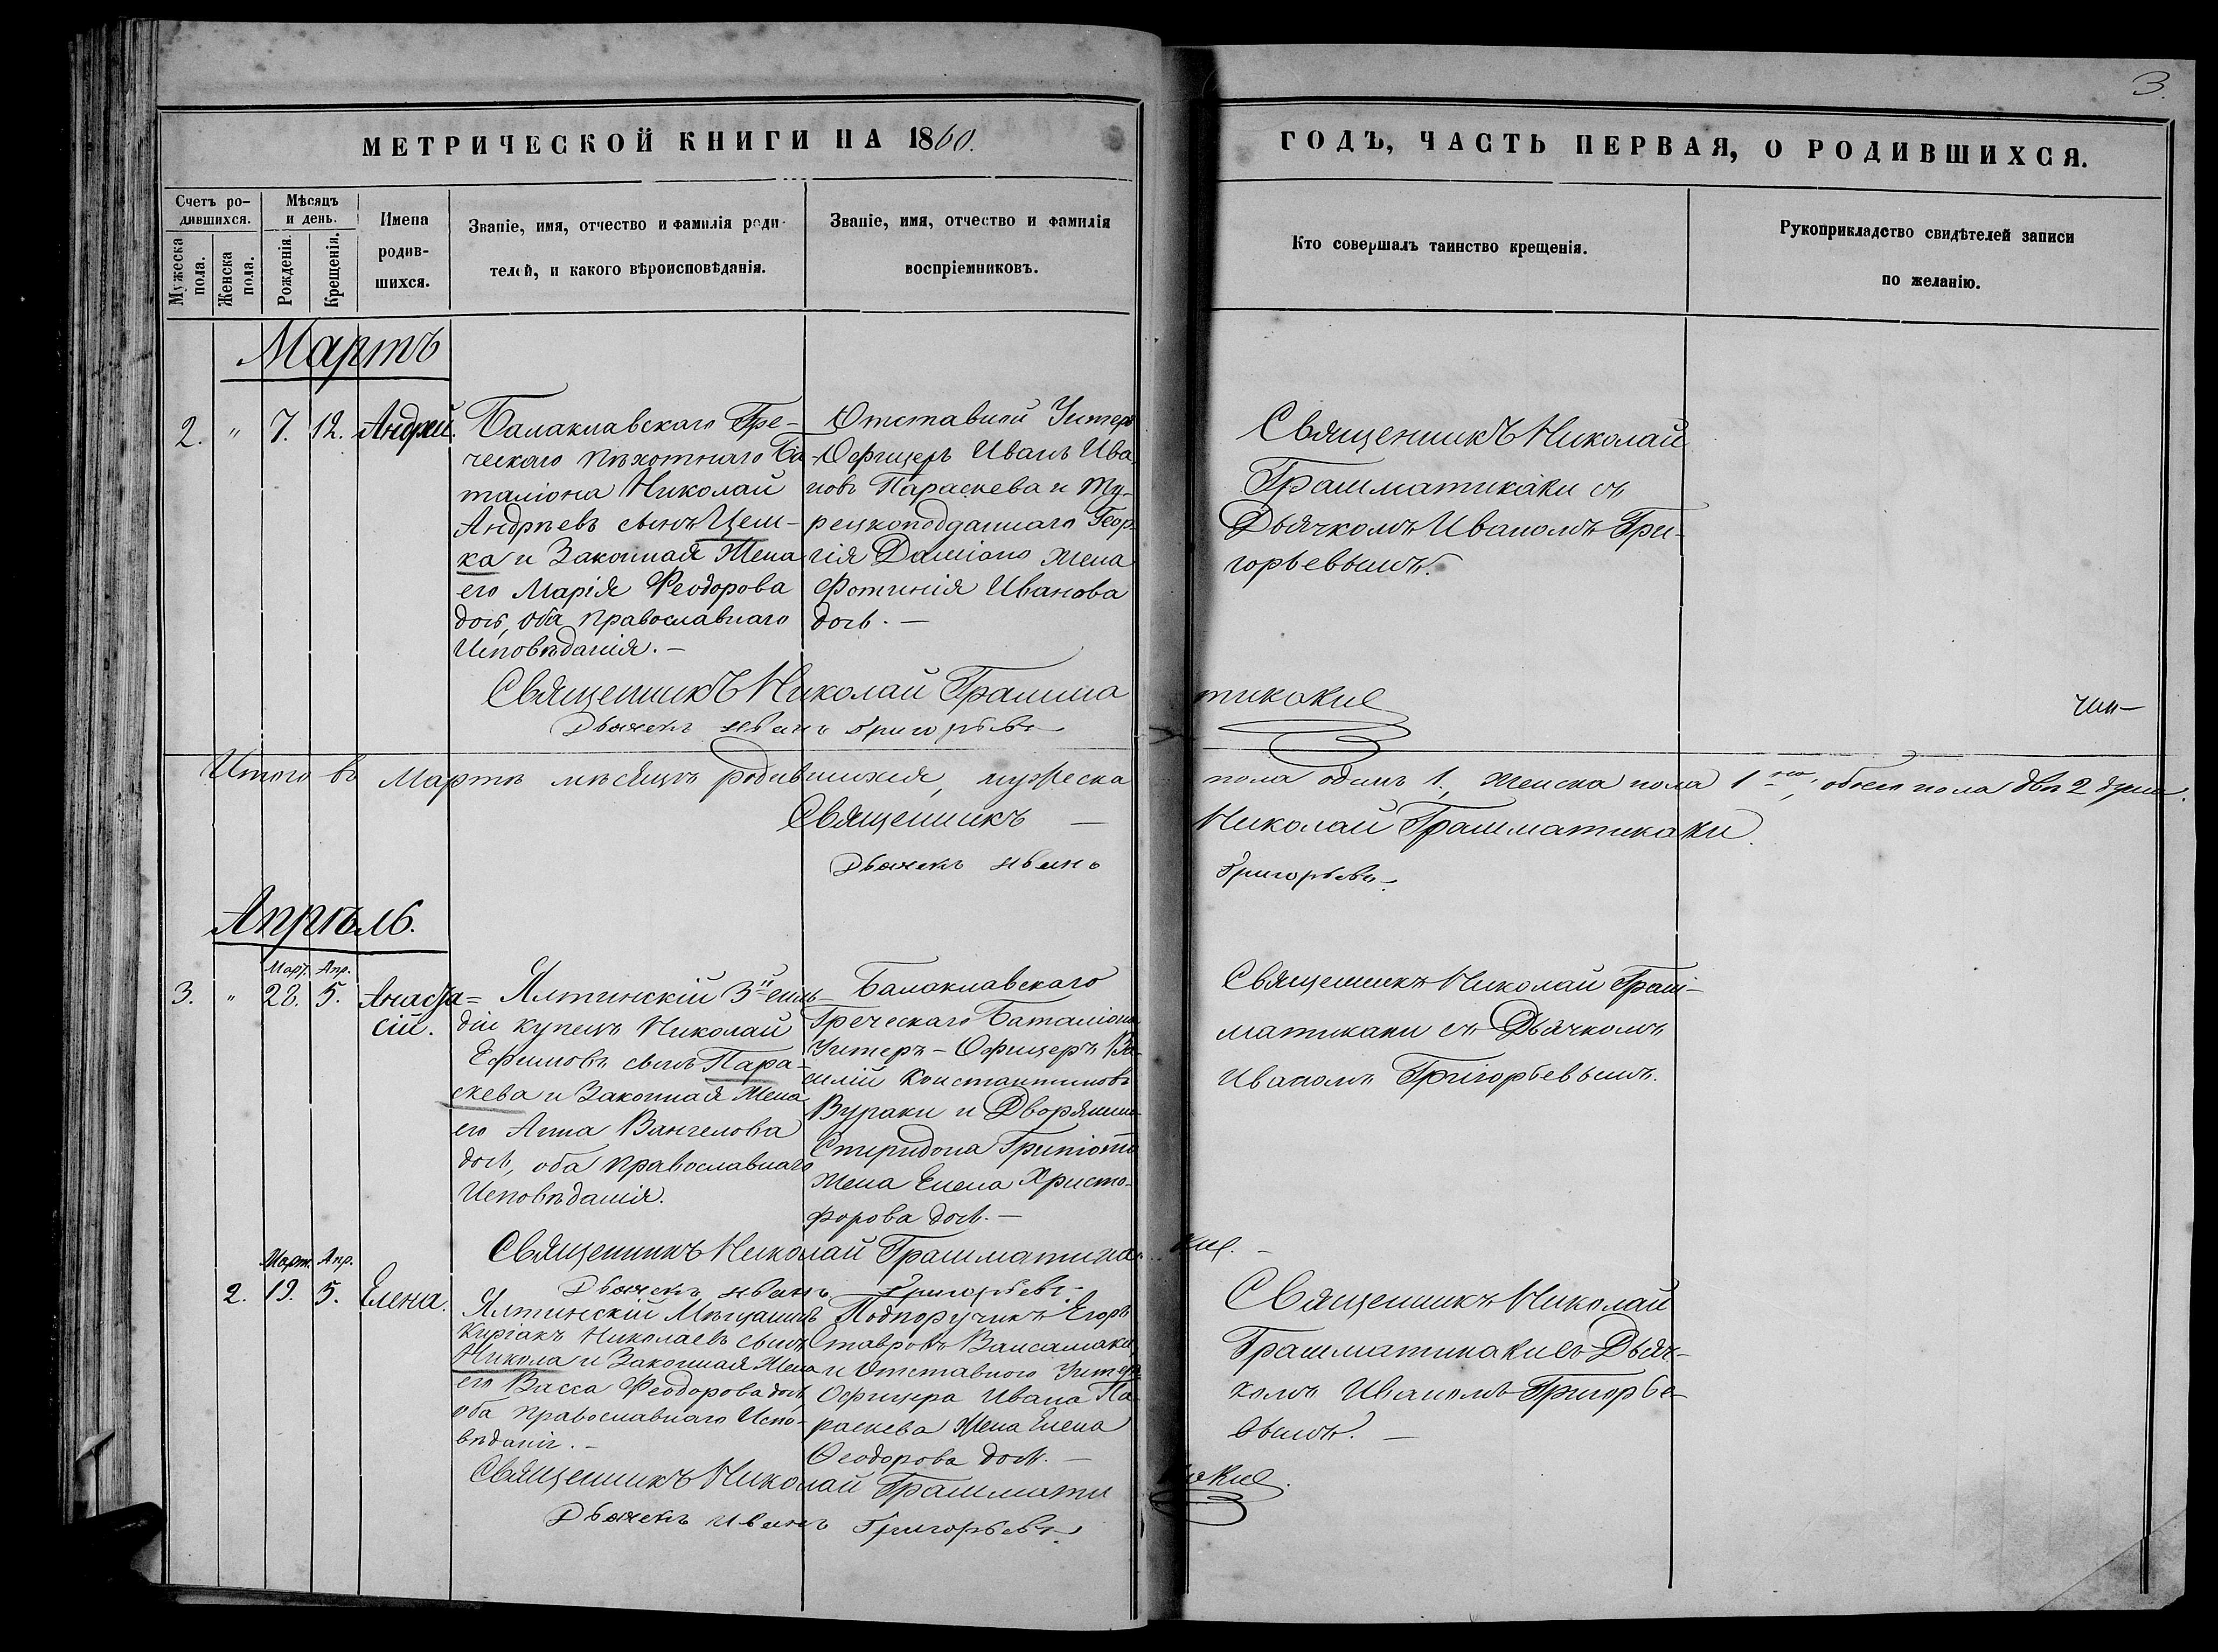 3.
МЕТРИЧЕСКОЙ КНИГИ НА 1860.
ГОДЪ, ЧАСТЬ ПЕРВАЯ, О РОДИВШИХСЯ.
Счетъ ро-
дившихся.
Мужеска
пола.
Женска
пола.
Мѣсяцъ
и день.
Рожденія.
Крещенія.
Имена
родив-
шихся.
Званіе, имя, отчество и фамилія роди-
телей, и какого вѣроисповѣданія.
Званіе, имя, отчество и фамилія
воспріемниковъ.
Кто совершалъ таинство крещенія.
Рукоприкладство свидѣтелей записи
по желанію.
Мартъ
2. " 7. 12. Андрей.
Балаклавскаго Гре-
ческаго пѣхотнаго Ба
таліона Николай
Андрѣевъ сынъ Цем-
ка и Законная Жена
его Марія Феодорова
дочь, оба православнаго
Исповѣданія. —
Отставной Унтеръ
-Офицеръ Иванъ Ива
новъ Параскева и Ту-
рецкоподданнаго Геор-
гія Даміано жена
Фотинія Иванова
дочь. —
Священникъ Николай
Грамматикаки съ
Дьячкомъ Иваномъ Гри-
горьевымъ.
Священникъ Николай Грамма
тикаки
Дьячекъ Иванъ Григорьевъ
Итого въ Мартѣ мѣсяцѣ родившихся, мужеска
пола одинъ 1., женска пола 1, обоего пола двѣ 2 души.
Священникъ —
Николай Грамматикаки.
Дьячекъ Иванъ
Григорьевъ.
Апрѣль.
Март. Апр.
3. " 28. 5. Анаста=
сій.
Ялтинскій 3й гиль-
діи купецъ Николай
Ефимовъ сынъ Пара-
скева и Законная Жена
его Анна Вангелова
дочь, оба православнаго
Исповѣданія.
Балаклавскаго
Греческаго Баталіона
Унтеръ-Офицеръ Ва-
силій Константиновъ
Вураки и Дворянина
Спиридона
Жена Елена Христо-
форова дочь. —
Священникъ Николай Грам-
матикаки съ Дьячкомъ
Иваномъ Григорьевымъ.
Священникъ Николай Грамматика
ки. —
Дьячекъ Иванъ Григорьевъ
Март. Апр.
2. 19. 5. Елена.
Ялтинскій Мѣщанинъ
Киріакъ Николаевъ сынъ
Никола и Законная Жена
его Васса Феодорова дочь,
оба православнаго Испо-
вѣданія. —
Подпоручикъ Егоръ
Ставровъ Валсамаки,
и Отставного Унтеръ
Офицера Ивана Па-
раскева Жена Елена
Феодорова дочь. —
Священникъ Николай
Грамматикаки съ Дьяч-
комъ Иваномъ Григорье-
вымъ. —
Священникъ Николай Граммати
каки.
Дьячекъ Иванъ Григорьевъ.